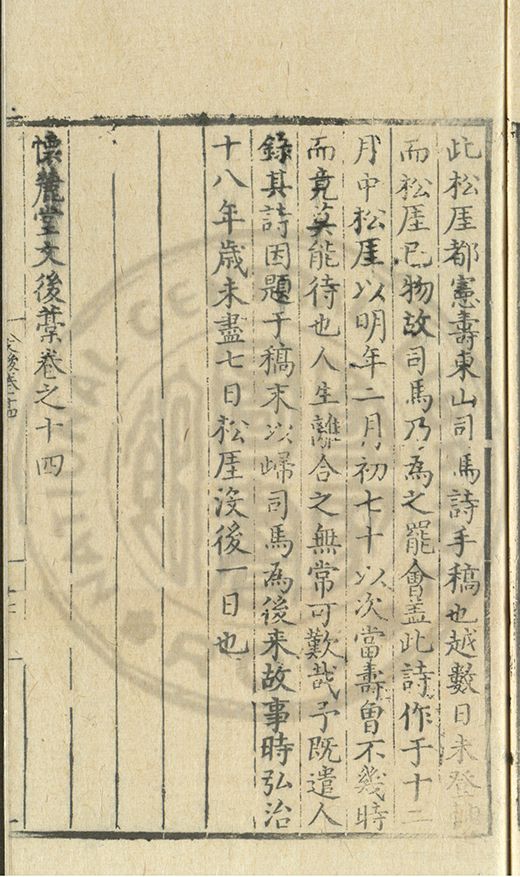 此松厓都憲壽東山司馬詩手稿也越數日未登
而松厓已物故司馬乃為之罷會盖此詩作于十二
月中松厓以明年二月初七十以次當壽曾不幾時
而竟莫能待也人生離合之無常可歎哉予既遣人
錄其詩因題于稿末以歸司馬為後来故事時弘治
十八年歳未盡七日松厓没後一日也
懐麓堂文後藁卷之十四